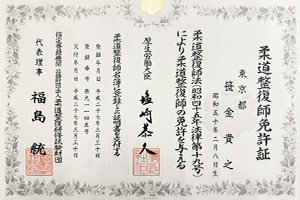 柔道整復師免許証
東京都
笹金貴之
昭和五十年二月八日生
柔道整復師法(昭和四十五年法律第十九号)
により柔道整復師の免許を与える
厚生労働大臣 塩崎恭久
柔道整復師名簿に登録し この証明書を交付する
登録年月日 平成二十七年三月三十日
登録番号 第九一一四五号
交付年月日 平成二十七年三月三十日
指定登録機関 公益財団法人柔道整復研修試験財団
代表理事 福島統